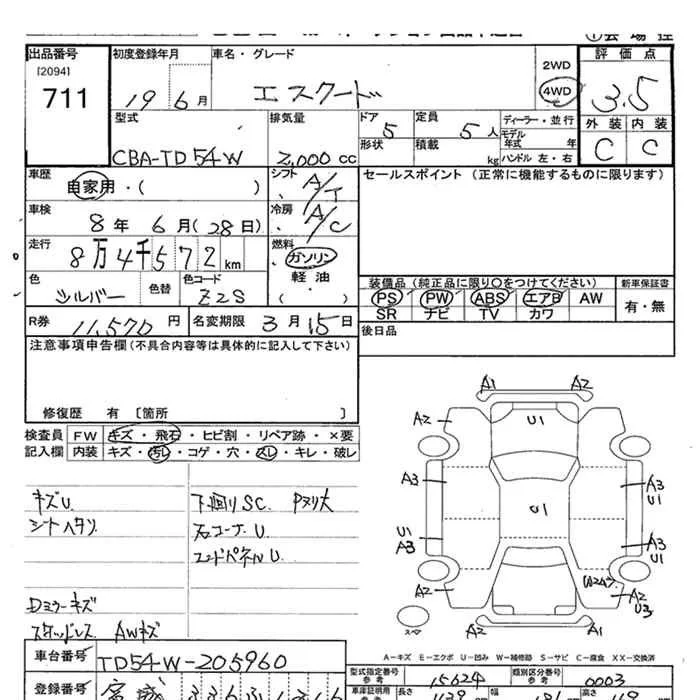 出品番号
[2094]
711
初度登録年月
19 6月
車名・グレード
エスクード
2WD
4WD
評価点
3.5
外装 内装
C C
型式
CBA-TD54W
排気量
2,000 cc
ドア
5
形状
定員
5人
積載
kg
ディーラー・並行
モデル
年式 年
ハンドル 左・右
車歴
自家用・( )
シフト
A/T
セールスポイント (正常に機能するものに限ります)
車検
8年 6月(28日)
冷房
A/C
走行
8万4千572km
燃料
ガソリン
軽油
( )
色
シルバー
色替
色コード
Z2S
装備品(純正品に限り〇をつけてください)
PS PW ABS エアB AW
SR ナビ TV カワ
新車保証書
有・無
R券
11,570円
名変期限 3月15日
後日品
注意事項申告欄(不具合内容等は具体的に記入して下さい)
修復歴 有 〔箇所 〕
検査員
記入欄
FW キズ・飛石・ヒビ割・リペア跡・×要
内装 キズ・汚レ・コゲ・穴・スレ・キレ・破レ
キズU
シートヘタリ
Dミラーキズ
スタッドレス AWキズ
下回りSC. Pヌリ大
右コーナーU
エンドパネルU
A1 A2
A2 U1 A2
A3 A3
U1
U1
U1 A3
A3 U1
W2A2
A2 A2
U3
A2 A1
スペア
A-キズ E-エクボ U-凹み W-補修跡 S-サビ C-腐食 XX-交換済
車台番号
TD54W-205960
型式指定番号
参考
15624
類別区分番号
参考
0003
登録番号
宮城
車庫証明用
長さ
幅
高さ